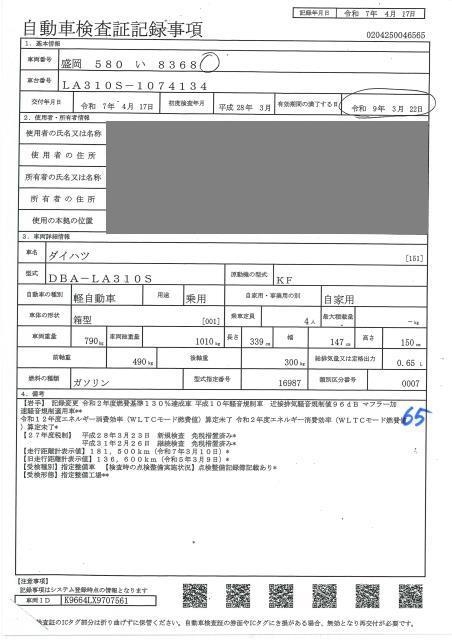 記録年月日 令和 7年 4月 17日
自動車検査証記録事項
0204250046565
1. 基本情報
車両番号 盛岡 580 い 8368
車台番号 LA310S-1074134
交付年月日 令和 7年 4月 17日 初度検査年月 平成 28年 3月 有効期間の満了する日 令和 9年 3月 22日
2. 使用者・所有者情報
使用者の氏名又は名称
使用者の住所
所有者の氏名又は名称
所有者の住所
使用の本拠の位置
3. 車両詳細情報
車名 ダイハツ [151]
型式 DBA-LA310S 原動機の型式 KF
自動車の種別 軽自動車 用途 乗用 自家用・事業用の別 自家用
車体の形状 箱型 [001] 乗車定員 4人 最大積載量 -kg
車両重量 790kg 車両総重量 1010kg 長さ 339cm 幅 147cm 高さ 150cm
前軸重 490kg 後軸重 300kg 総排気量又は定格出力 0.65 L
燃料の種類 ガソリン 型式指定番号 16987 類別区分番号 0007
4. 備考
【岩手】 記録変更 令和2年度燃費基準130%達成車 平成10年軽騒音規制車 近接排気騒音規制値96dB マフラー加
速騒音規制適用車**
令和12年エネルギー消費効率(WLTCモード燃費値)算定未了 令和2年度エネルギー消費効率(WLTCモード燃費値
)算定未了*
65
【27年度税制】 平成28年3月23日 新規検査 免税措置済み*
平成31年2月26日 継続検査 免税措置済み*
【走行距離計表示値】181,500km(令和7年3月10日)*
【旧走行距離計表示値】136,600km(令和5年3月9日)*
【受検種別】指定整備車 【検査時の点検整備実施状況】点検整備記録簿記載あり*
【受検形態】指定整備工場**
【注意事項】
記録事項はシステム登録時点の情報となります
車両ID K9664LX9707561
検査証のICタグ部分は折り曲げずに保管ください。自動車検査証の券面やICタグにき損がある場合、無効となり再交付が必要です。